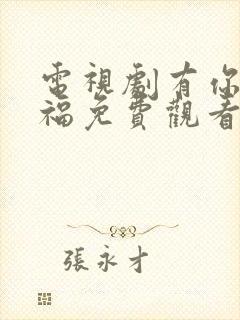 電視劇有你
福免費觀看
張永才